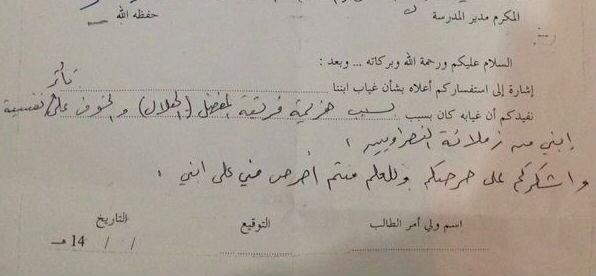 المكرم مدير المدرسة حفظه الله
السلام عليكم ورحمة الله وبركاته ... وبعد :
إشارة إلى استفساركم أعلاه بشأن غياب ابننا
نفيدكم أن غيابه كان بسبب بسبب هزيمة فريقة المفضل (الهلال) والخوف على نفسية
إبني من زملائة النصراويين ،
واشكركم على حرصكم وللعلم فنتم أحرص مني على ابني .
اسم ولي أمر الطالب التوقيع التاريخ
/ / 14 هـ